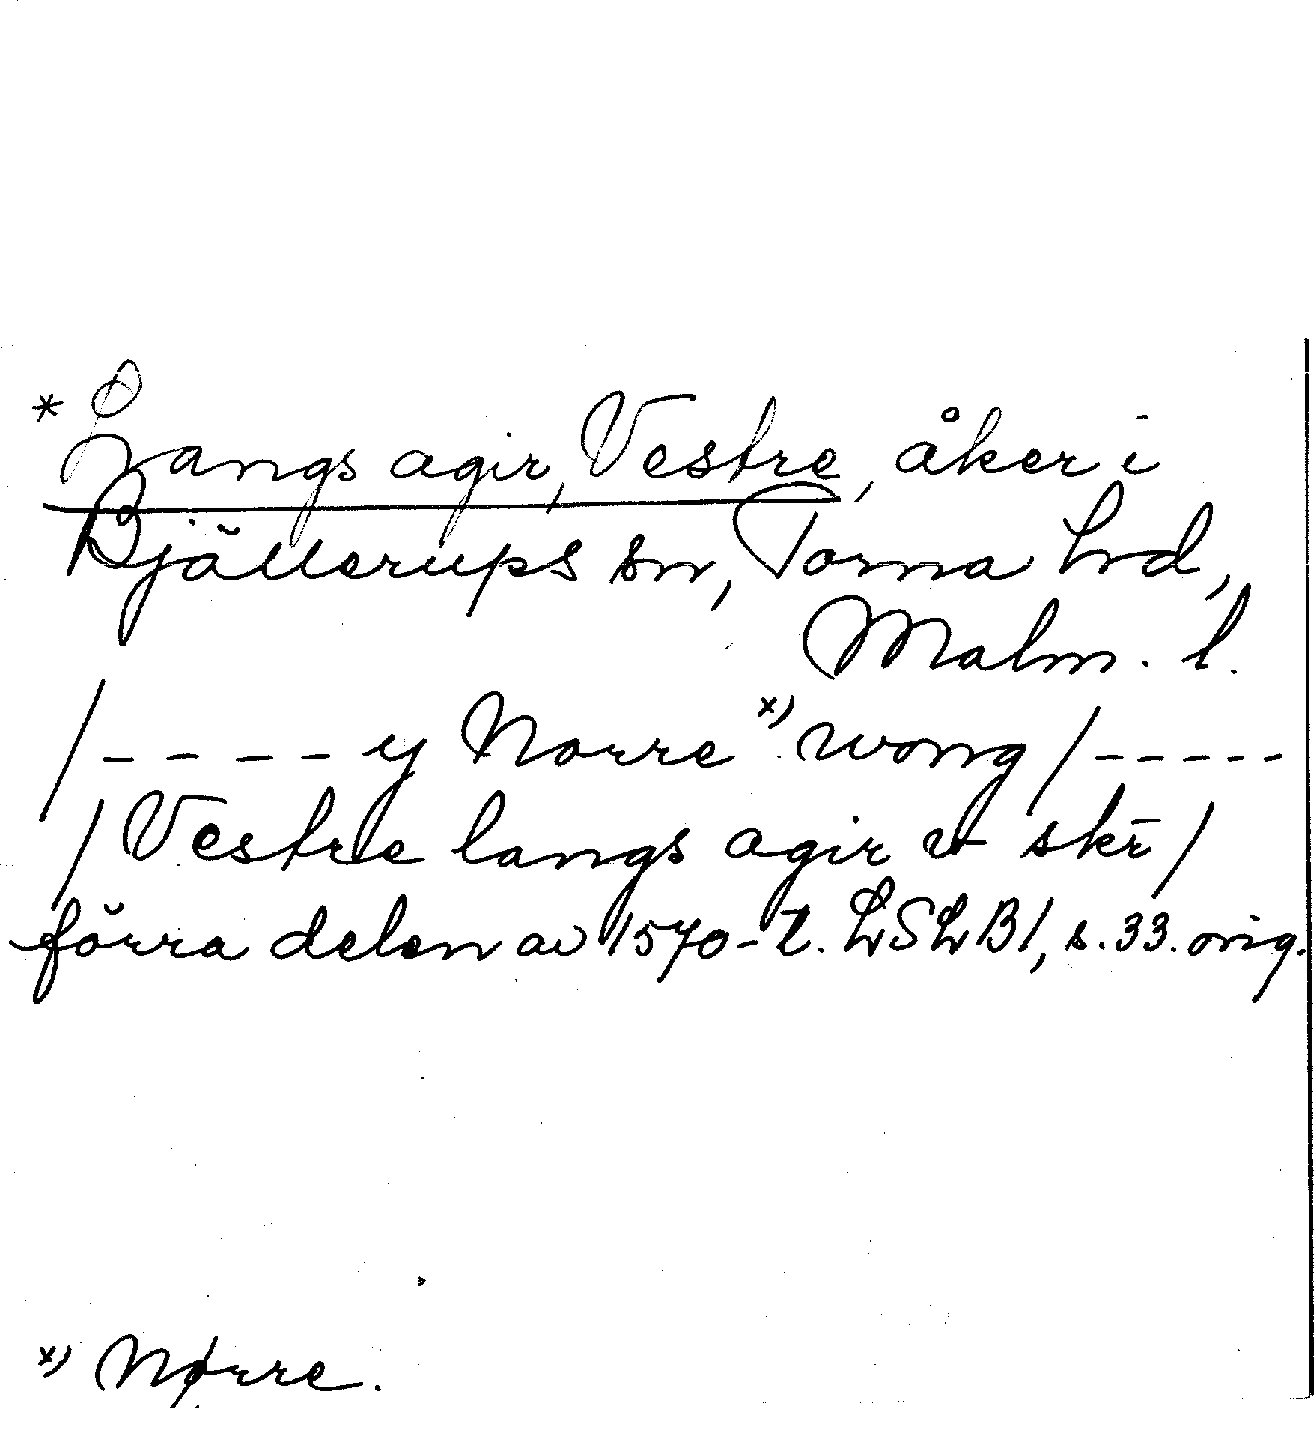 * Langs agir, Vestre, åker i
Bjällerups sn, Torna hrd,
Malm. l.
/ - - - - y Norre x) wong / - - - - -
/ Vestre langs agir v skī /
förra delen av 1570-t. LSLB1, s. 33. orig.
x) Nørre.